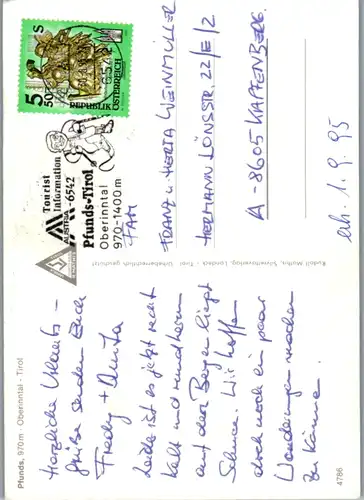 Pfunds, 970 m · Oberinntal · Tirol
Herzliche Urlaubs -
grüße senden Euch
Fredy + Anita
Leider ist es jetzt recht
kalt und rundherum
auf den Bergen liegt
Schnee. Wir hoffen
doch noch ein paar
Wanderungen machen
zu können.
4786
Rudolf Mathis, Landeck - Tirol
Urheberrechtlich geschützt
Tourist
Information
AUSTRIA
A-6542
Pfunds-Tirol
Oberinntal
970-1400m
6542
5
50
S
REPUBLIK
ÖSTERREICH
FAM
FRANZ u. HERTA WEINMÜLLER
HERMANN LÖNSSTR. 22/E/2
A-8605 KAPFENBERG
erh. 1.9.95